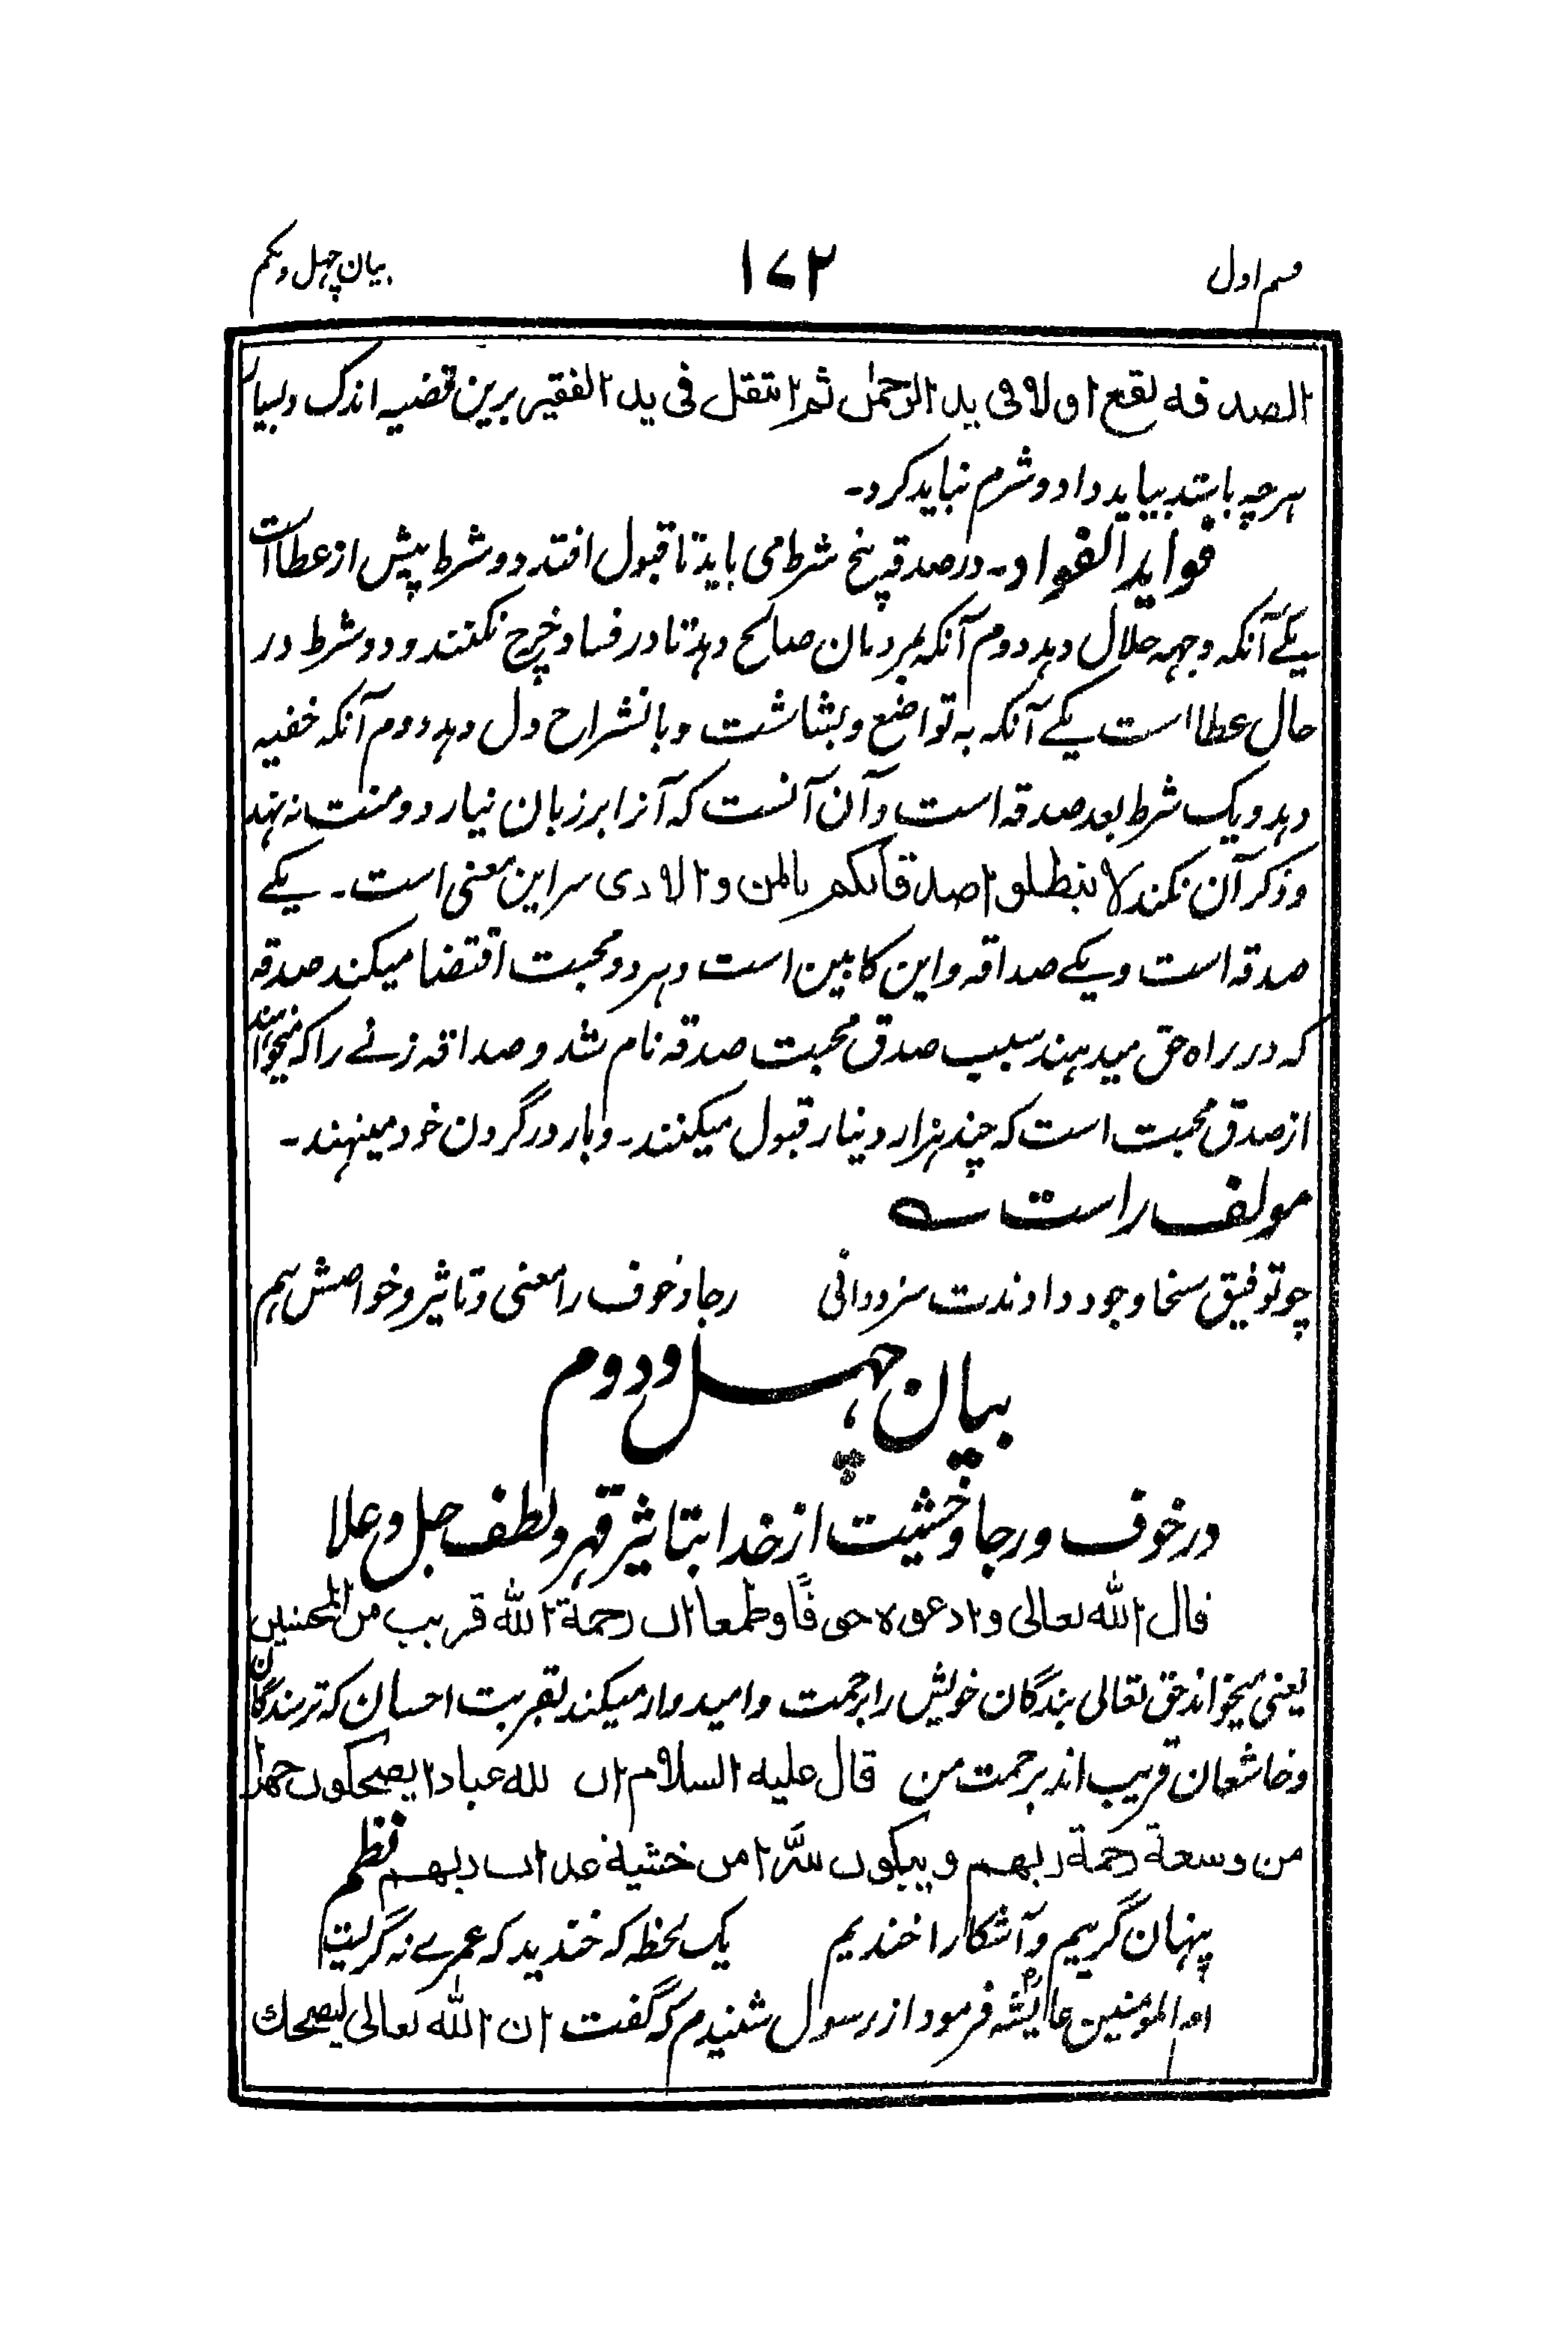 قسم اول ۱۷۲ بیان چهل ویکم
الصدقة تقع اولا فی ید الرحمٰن ثم انتقل فی ید الفقیر برین قضیه اندک وبسیار
هرچه باشد بباید داد وشرم نباید کرد۔
فواید الفواد۔ در صدقه پنج شرط می باید تا قبول افتد دو شرط پیش از عطا است
یکے آنکه وجهه حلال دهد دوم آنکه بمردمان صالح دهد تا در فساد خرچ نکنند و دو شرط در
حال عطا است یکے آنکه به تواضع وبشاشت وبانشراح دل دهد دوم آنکه خفیه
دهد ویک شرط بعد صدقه است وآن آنست که آنرا بر زبان نیارد ومنت نه نهد
وذکر آن نکند لا تبطلوا صدقاتکم بالمن والاذی سر این معنی است۔ یکے
صدقه است ویکے صداقه واین کابین است وهر دو محبت اقتضا میکند صدقه
که در راه حق میدهند سبب صدق محبت صدقه نام شد وصداقه زنے را که میخواهند
از صدق محبت است که چند هزار دینار قبول میکنند۔ وبار در گردن خود مینهند۔
مولف راست ے
چو توفیق سخا وجود دادندت سزد دانی رجا وخوف را معنی وتاثیر وخواصش هم
بیان چهل ودوم
در خوف ورجا وخشیت از خدا بتاثیر قهر ولطف جل وعلا
قال الله تعالی وادعوه خوفًا وطمعا ان رحمة الله قریب من المحسنین
یعنی میخواند حق تعالی بندگان خویش را برحمت وامیدوار میکند بقربت احسان که ترسندگان
وخاشعان قریب اند برحمت من قال علیه السلام ان لله عبادا یضحکون جهرا
من وسعة رحمة ربهم ویبکون سرًّا من خشیة عذاب ربهم نظم
پنهان گریم وآشکارا خندیم یک لحظه که خندید که عمرے نه گریست
ام المومنین عایشه رض فرمود از رسول شنیدم که گفت ان الله تعالی لیضحك